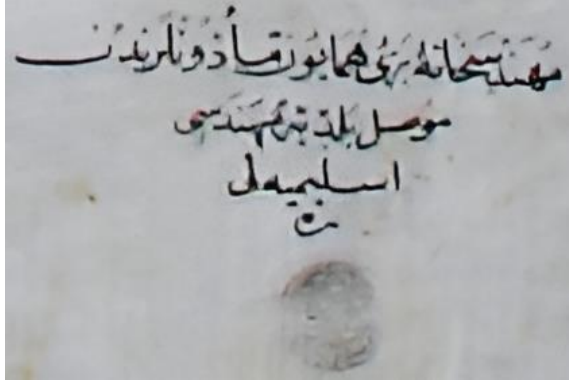 مهندسخانهٔ برئ همایون مأذونلرندن
موصل بلدیه مهندسى
اسلیمیه لى